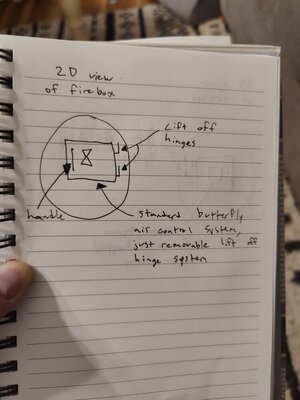 2D view
of firebox
Lift off
hinges
handle
standard butterfly
air control system,
just removable lift off
hinge system